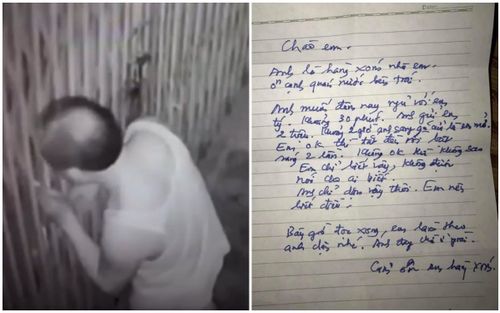 Chào em.
Anh là hàng xóm nhà em.
Ở cạnh quán nước bên trái.
Anh muốn đêm nay ngủ với em
tý. Khoảng 30 phút. Anh gửi em
2 triệu. Khoảng 2 giờ anh sang gõ cửa là em mở.
Em ok thì tắt đèn rồi bật
sáng 2 lần. Không ok thì không sao
Em chỉ biết vậy, không được
nói cho ai biết.
Anh chỉ dám vậy thôi. Em nên
biết điều!
Bây giờ đọc xong, em làm theo
anh dặn nhé. Anh đang chờ ở ngoài.
Cảm ơn em hàng xóm.